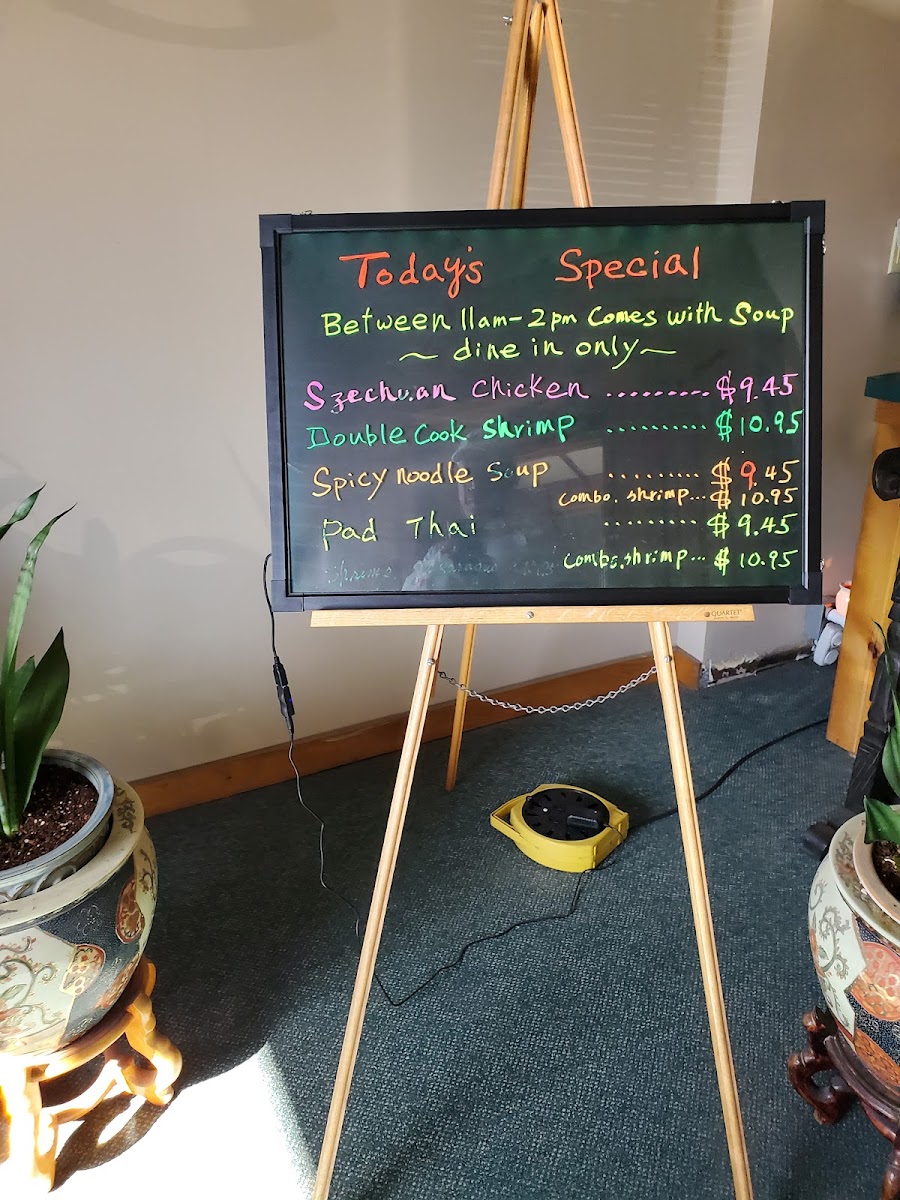 Today's Special
Between 11am-2pm Comes with Soup
~ dine in only ~
Szechuan Chicken ......... $9.45
Double Cook Shrimp .......... $10.95
Spicy noodle Soup ......... $9.45
combo. shrimp... $10.95
Pad Thai ......... $9.45
combo. shrimp... $10.95
QUARTET